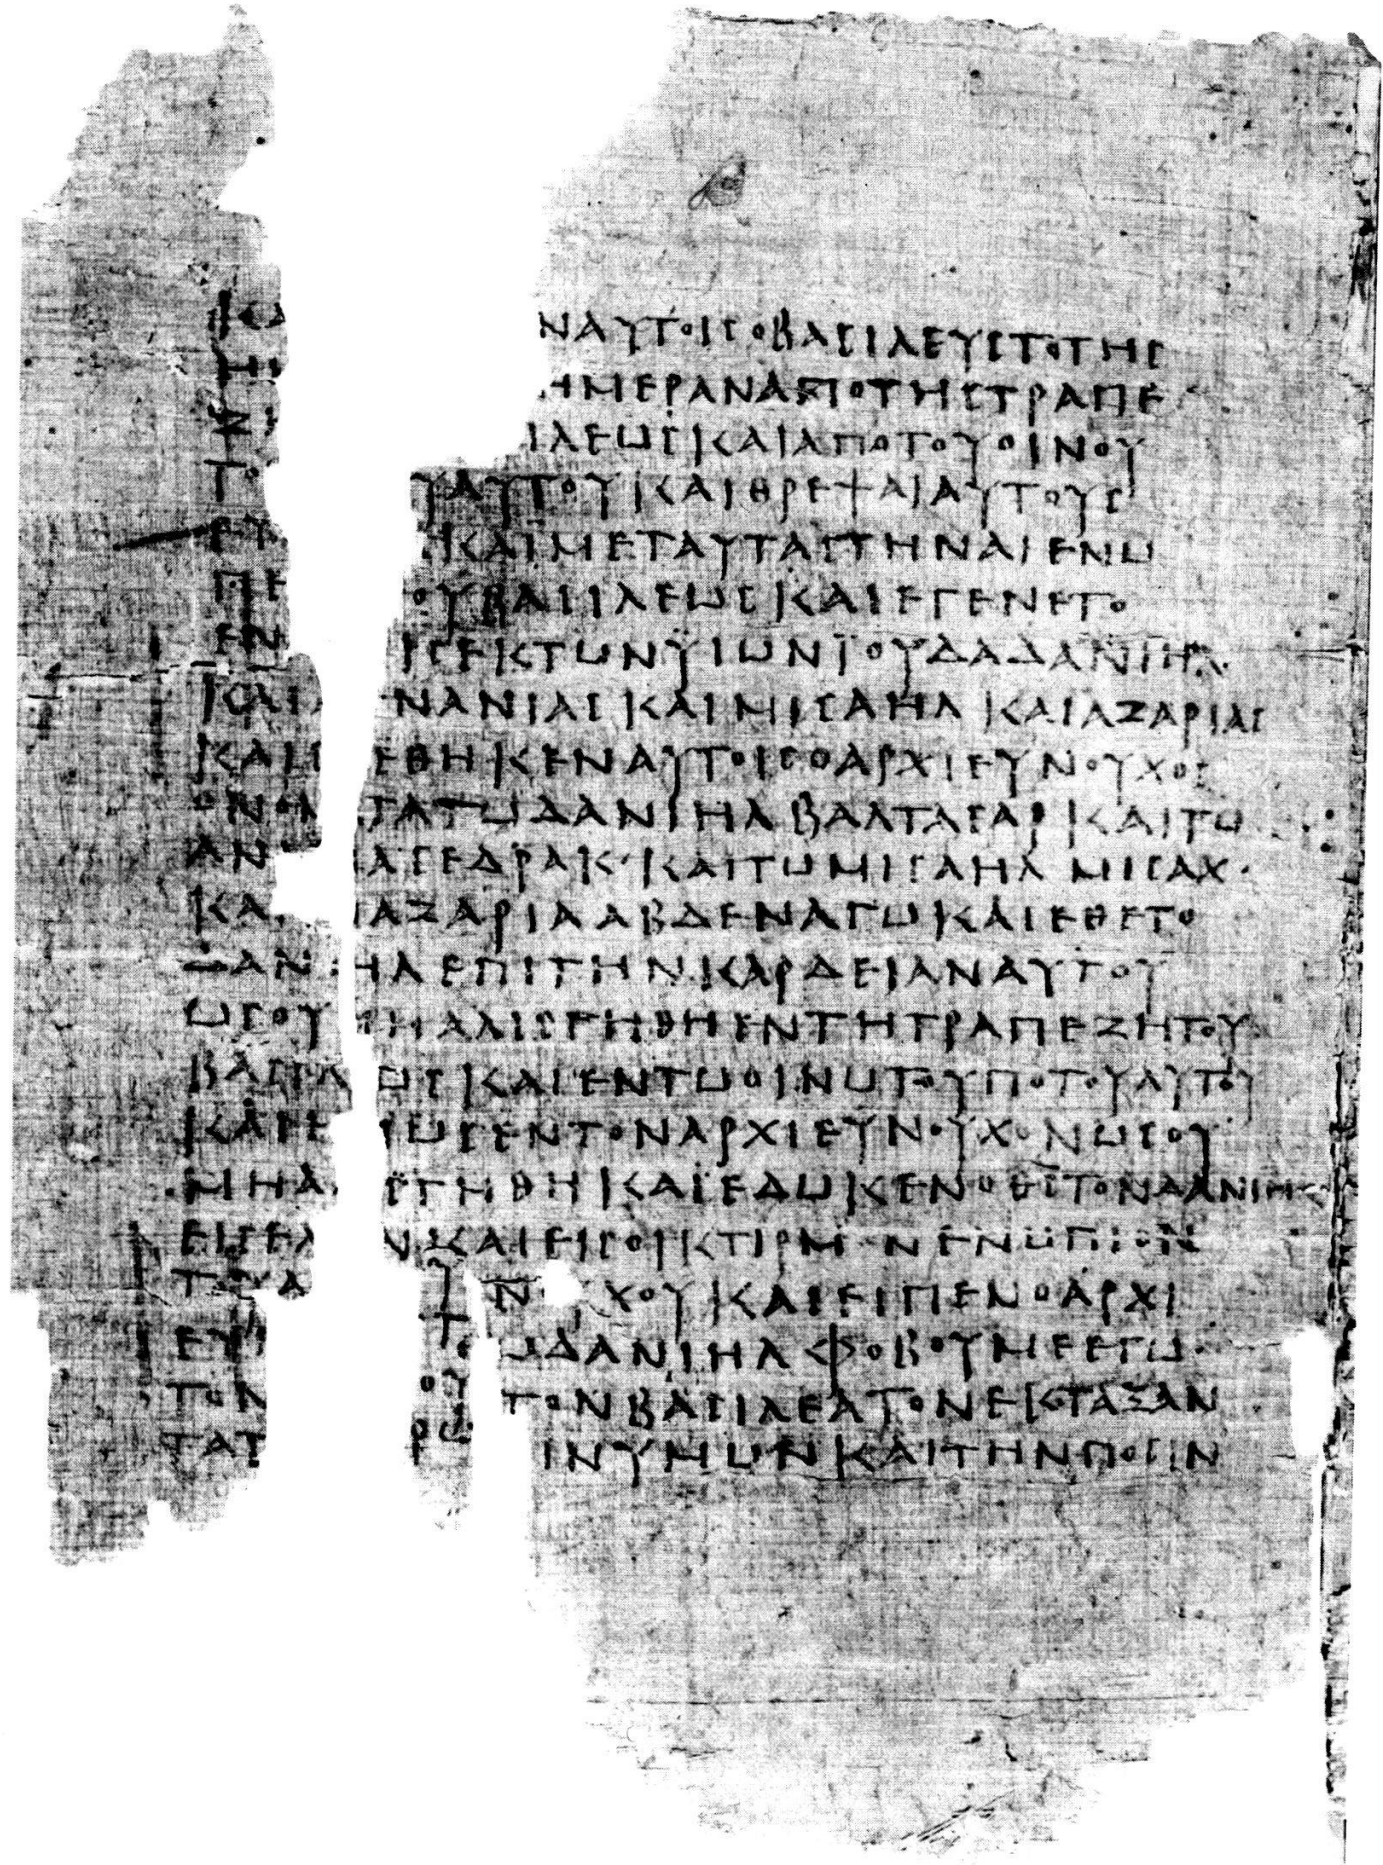 ΚΑ ΝΑΥΤΟΙϹΟΒΑϹΙΛΕΥϹΤΟΤΗϹ
Η ΗΜΕΡΑΝΑΠΟΤΗϹΤΡΑΠΕ
Ζ ΙΛΕΩϹΚΑΙΑΠΟΤΟΥΟΙΝΟΥ
ΤΟ ΥΑΥΤΟΥΚΑΙΘΡΕΨΑΙΑΥΤΟΥϹ
ΕΤ ΚΑΙΜΕΤΑΥΤΑϹΤΗΝΑΙΕΝΩ
ΠΕ ΟΥΒΑϹΙΛΕΩϹΚΑΙΕΓΕΝΕΤΟ
ΕΝ ΙϹΕΚΤΩΝΫΙΩΝΪΟΥΔΑΔΑΝΙΗΛ
ΚΑΙΑ ΝΑΝΙΑϹΚΑΙΜΙϹΑΗΛΚΑΙΑΖΑΡΙΑϹ
ΚΑΙ ΕΘΗΚΕΝΑΥΤΟΙϹΟΑΡΧΙΕΥΝΟΥΧΟϹ
ΟΝΟΜ ΤΑΤΩΔΑΝΙΗΛΒΑΛΤΑϹΑΡΚΑΙΤΩ
ΑΝ ΑϹΕΔΡΑΚ·ΚΑΙΤΩΜΙϹΑΗΛΜΙϹΑΧ·
ΚΑ ΑΖΑΡΙΑΑΒΔΕΝΑΓΩΚΑΙΕΘΕΤΟ
ΔΑΝ ΗΛΕΠΙΤΗΝΚΑΡΔΕΙΑΝΑΥΤΟΥ
ΩϹΟΥ ΜΗΑΛΙϹΓΗΘΗΕΝΤΗΤΡΑΠΕΖΗΤΟΥ
ΒΑϹΙΛ ΩϹΚΑΙΕΝΤΩΟΙΝΩΤΟΥΠΟΤΟΥΑΥΤΟΥ
ΚΑΙ ΙΩϹΕΝΤΟΝΑΡΧΙΕΥΝΟΥΧΟΝΩϹΟΥ
ΜΗΑ ϹΓΗΘΗΚΑΪΕΔΩΚΕΝΟΘϹΤΟΝΔΑΝΙΗΛ
ΕΙϹΕΛ ΝΚΑΙΕΙϹΟΙΚΤΙΡΜΟΝΕΝΩΠΙΟΝ
ΤΟΥΑ ΥΝ ΧΟΥΚΑΙΕΙΠΕΝΟΑΡΧΙ
ΕΥ ΤΩΔΑΝΙΗΛΦΟΒΟΥΜΕΕΓΩ·
ΤΟΝ ΟΥ ΤΟΝΒΑϹΙΛΕΑΤΟΝΕΚΤΑΞΑΝ
ΤΑΤ ΡΩ ΙΝΥΜΩΝΚΑΙΤΗΝΠΟϹΙΝ